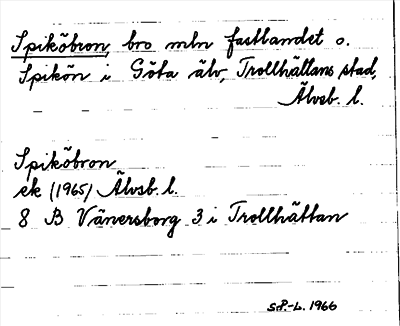 Spiköbron, bro mln fastlandet o.
Spikön i Göta älv, Trollhättans stad,
Älvsb. l.
Spiköbron
ek (1965) Älvsb. l.
8 B Vänersborg 3 i Trollhättan
S.P.-L. 1966